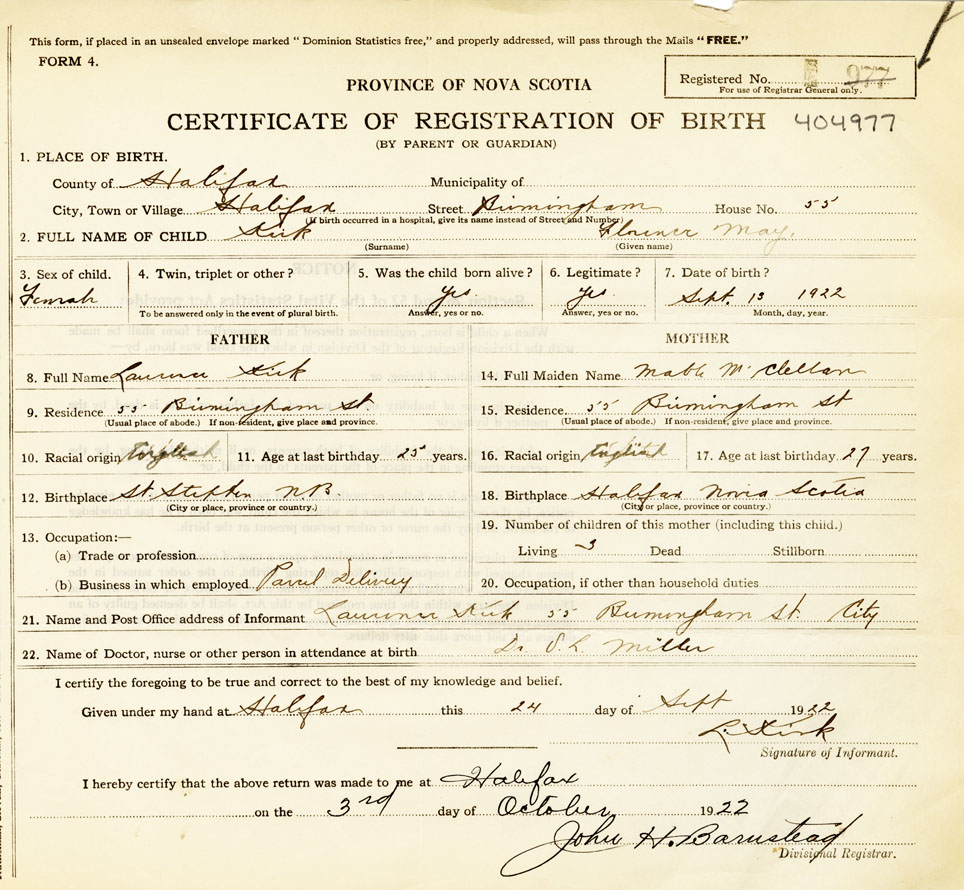 This form, if placed in an unsealed envelope marked " Dominion Statistics free," and properly addressed, will pass through the Mails "FREE."
FORM 4.
PROVINCE OF NOVA SCOTIA
Registered No. 977
For use of Registrar General only.
CERTIFICATE OF REGISTRATION OF BIRTH 404977
(BY PARENT OR GUARDIAN)
1. PLACE OF BIRTH.
County of Halifax Municipality of
City, Town or Village Halifax Street Birmingham House No. 55
(If birth occurred in a hospital, give its name instead of Street and Number)
2. FULL NAME OF CHILD Kirk Florence May.
(Surname) (Given name)
3. Sex of child. 4. Twin, triplet or other? 5. Was the child born alive? 6. Legitimate? 7. Date of birth?
Female Yes Yes Sept. 13 1922
To be answered only in the event of plural birth. Answer, yes or no. Answer, yes or no. Month, day, year.
FATHER MOTHER
8. Full Name Laurence Kirk 14. Full Maiden Name Mable McClellan
9. Residence 55 Birmingham St 15. Residence 55 Birmingham St
(Usual place of abode.) If non-resident, give place and province. (Usual place of abode.) If non-resident, give place and province.
10. Racial origin English 11. Age at last birthday 25 years. 16. Racial origin English 17. Age at last birthday 27 years.
12. Birthplace St. Stephen N.B. 18. Birthplace Halifax Nova Scotia
(City or place, province or country.) (City or place, province or country.)
13. Occupation:— 19. Number of children of this mother (including this child.)
(a) Trade or profession Living 3 Dead Stillborn
(b) Business in which employed Parcel Delivery 20. Occupation, if other than household duties
21. Name and Post Office address of Informant Laurence Kirk 55 Birmingham St. City
22. Name of Doctor, nurse or other person in attendance at birth Dr. O. L. Miller
I certify the foregoing to be true and correct to the best of my knowledge and belief.
Given under my hand at Halifax this 24 day of Sept 1922
L. Kirk
Signature of Informant.
I hereby certify that the above return was made to me at Halifax
on the 3rd day of October 1922
John H. Barnstead
Divisional Registrar.